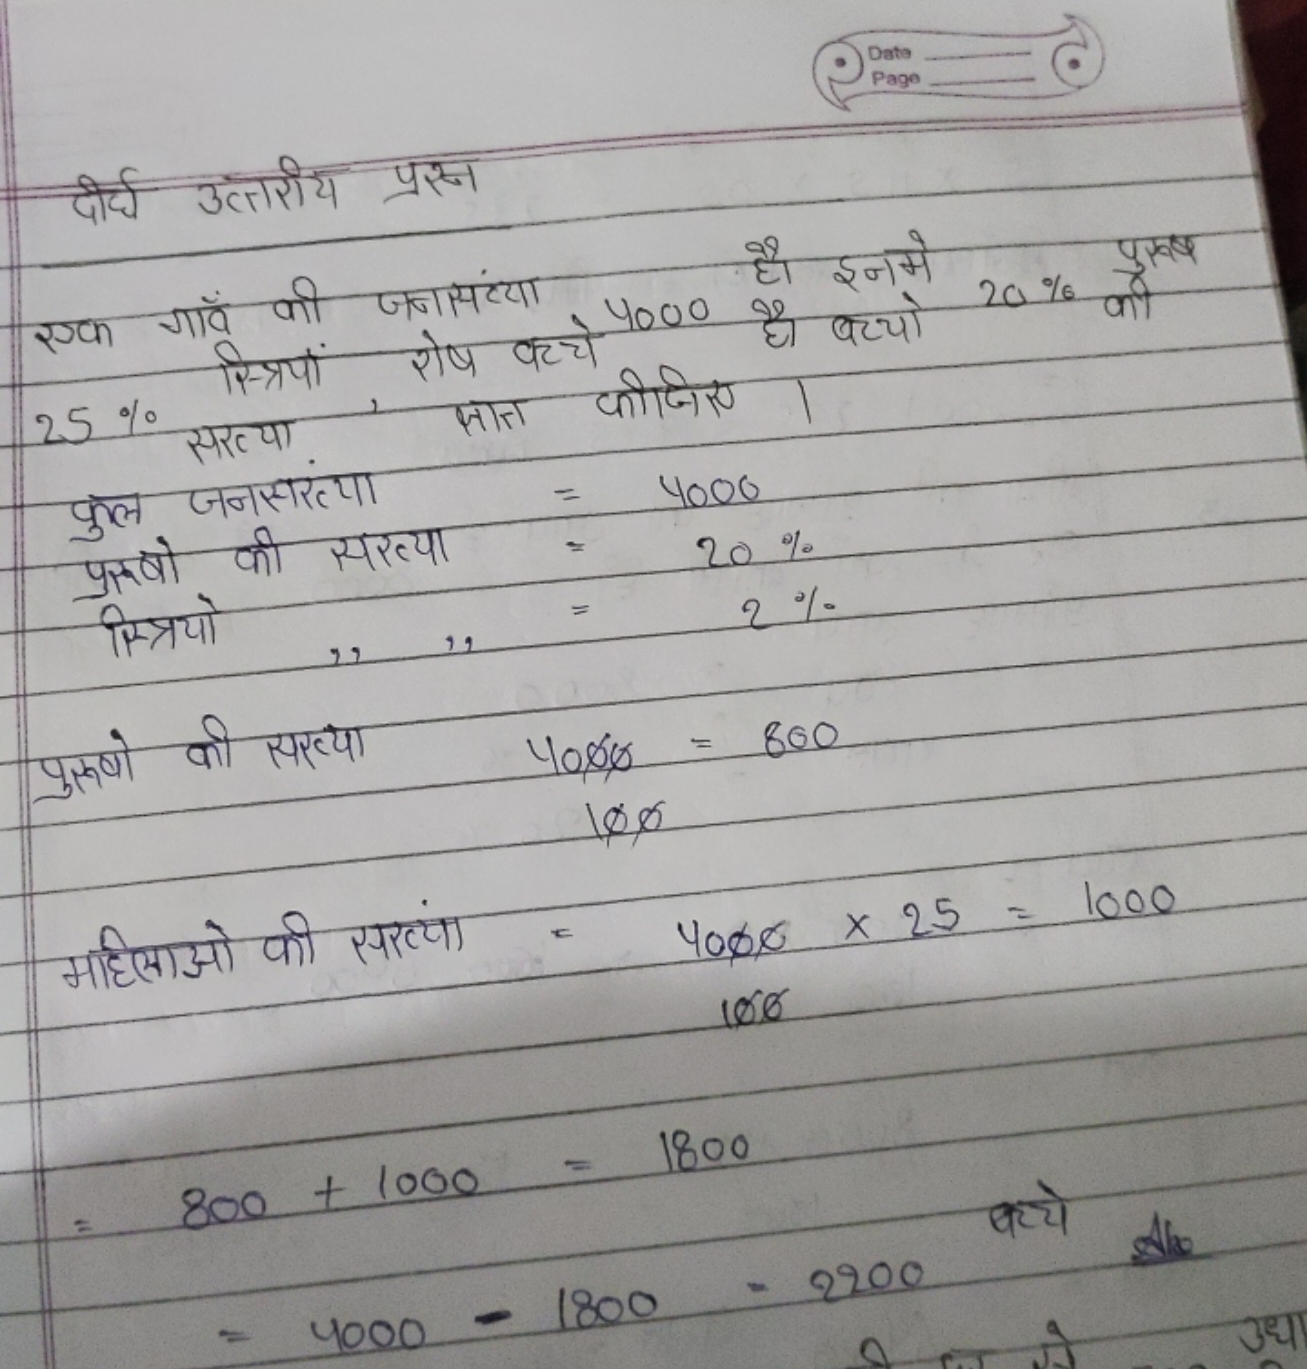 Date
Page
दीर्घ उत्तरीय प्रश्न
एक गाँव की जनसंख्या 4000 है। इनमे 20 % पुरूष
25 % स्त्रियां , शेष बच्चे है। बच्चो की
सख्या ज्ञात कीजिए ।
कुल जनसंख्या = 4000
पुरूषो की सख्या = 20 %
स्त्रियो ,, ,, = 2 %
पुरूषो की सख्या 4000 = 800
100
महिलाओ की सख्यां = 4000 x 25 = 1000
100
= 800 + 1000 = 1800
= 4000 - 1800 = 2200 बच्चे Ans